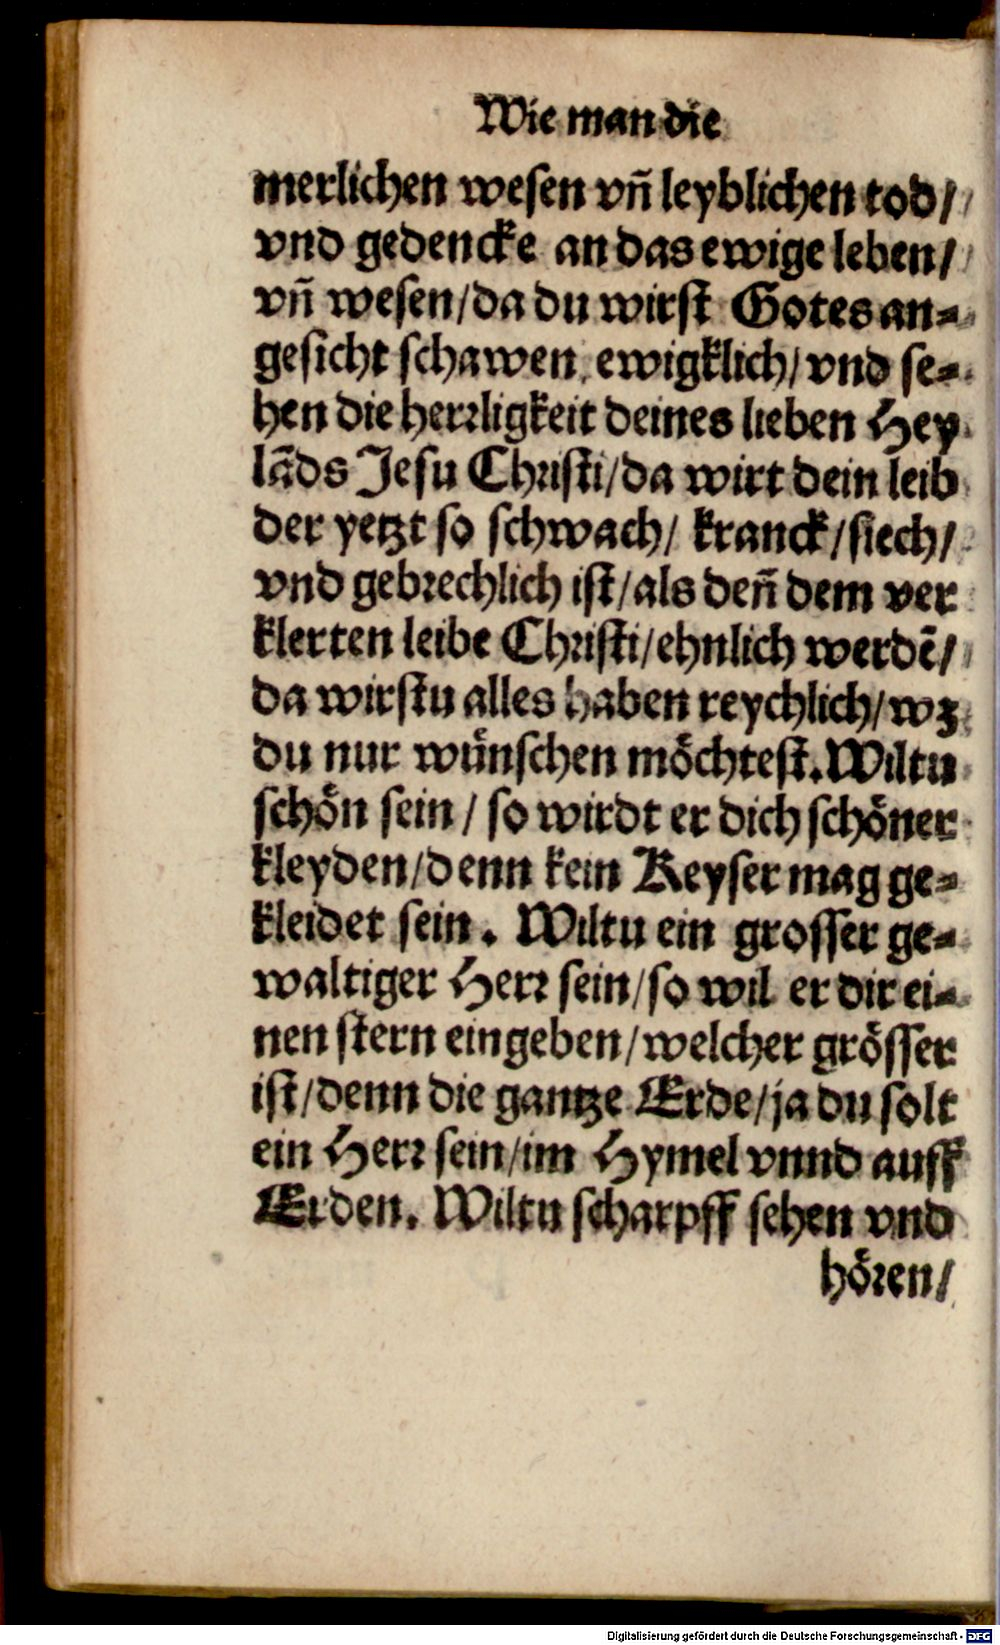 Wie man die
merlichen wesen vñ leyblichen tod /
vnd gedencke an das ewige leben /
vñ wesen / da du wirst Gotes an⸗
gesicht schawen ewigklich / vnd se⸗
hen die herrligkeit deines lieben Hey
lãds Jesu Christi / da wirt dein leib
der yetzt so schwach / kranck / siech /
vnd gebrechlich ist / als deñ dem ver
klerten leibe Christi / ehnlich werdẽ /
da wirstu alles haben reychlich / wz
du nur wünschen möchtest. Wiltu
schön sein / so wirdt er dich schöner
kleyden / denn kein Keyser mag ge⸗
kleidet sein. Wiltu ein grosser ge⸗
waltiger Herr sein / so wil er dir ei⸗
nen stern eingeben / welcher grösser
ist / denn die gantze Erde / ja du solt
ein Herr sein / im Hymel vnnd auff
Erden. Wiltu scharpff sehen vnd
hören /
Digitalisierung gefördert durch die Deutsche Forschungsgemeinschaft - DFG